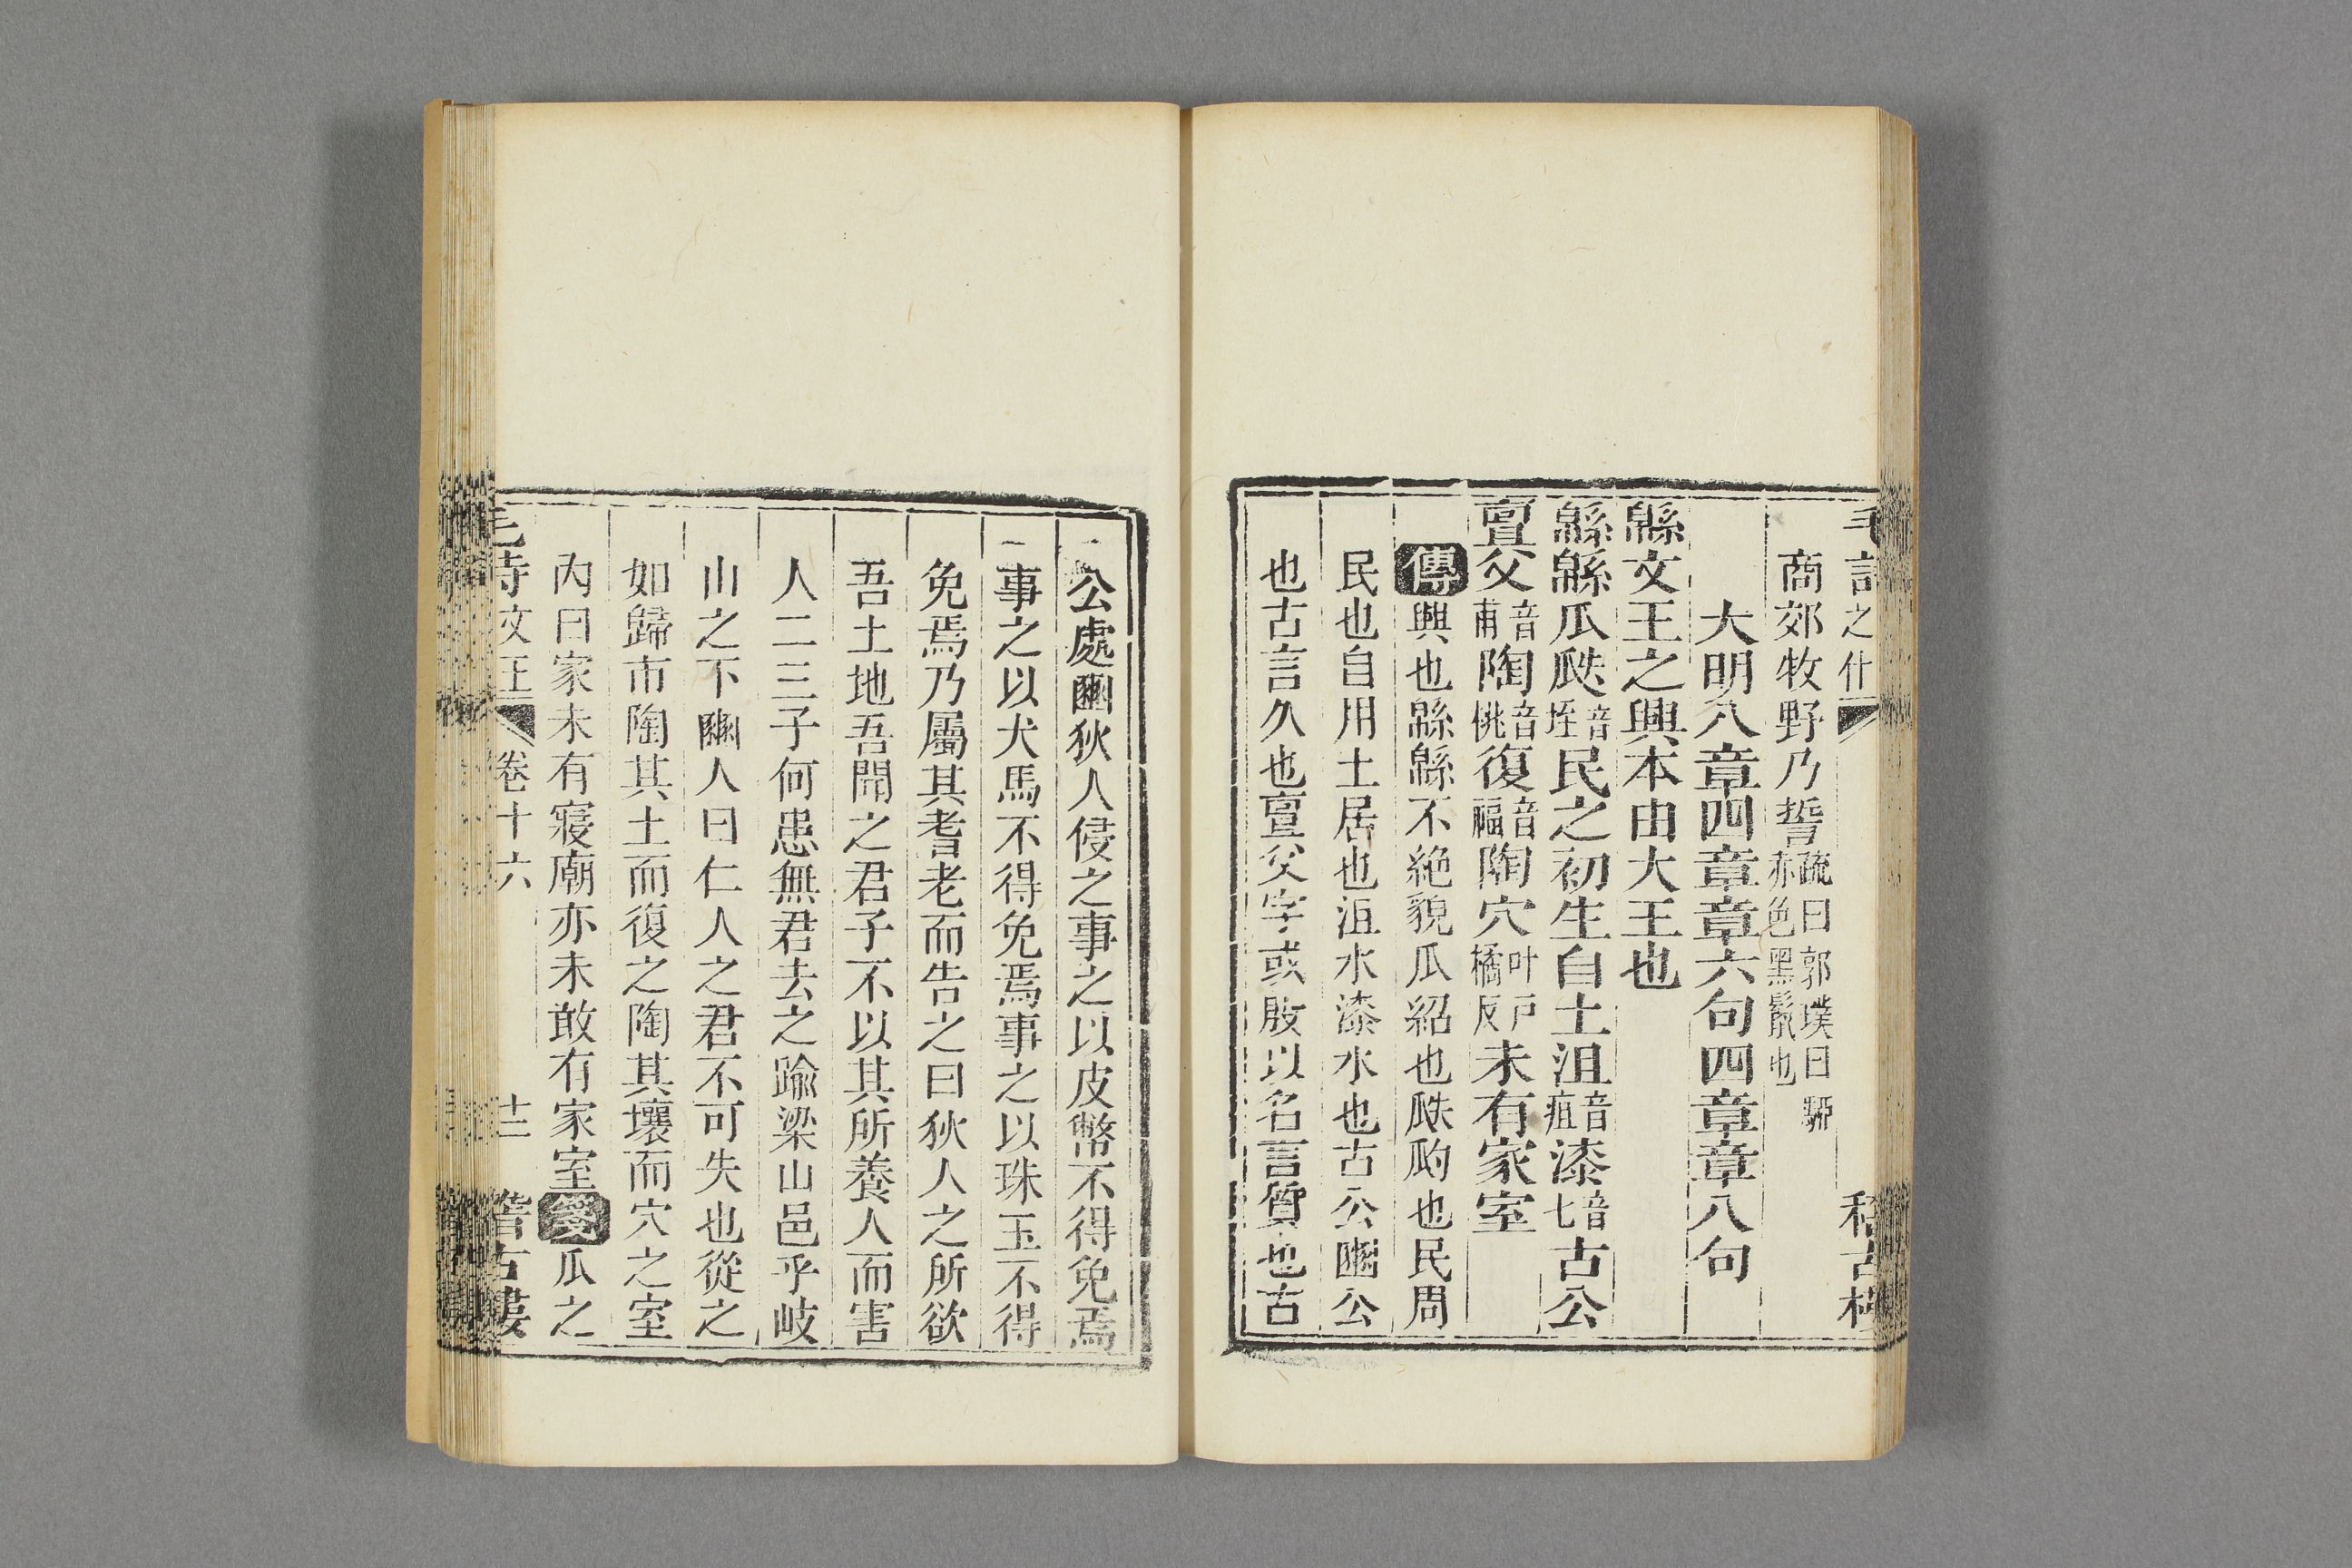 商郊牧野乃誓疏曰郭璞曰騵赤色黑鬣也
大明八章四章章六句四章章八句
緜文王之興本由大王也
緜緜瓜瓞音垤民之初生自土沮音疽漆音七古公
亶父音甫陶音桃復音福陶穴叶戶橘反未有家室
傳興也緜緜不絶貌瓜紹也瓞瓝也民周
民也自用土居也沮水漆水也古公豳公
也古言久也亶父字或殷以名言質也古
公處豳狄人侵之事之以皮幣不得免焉
事之以犬馬不得免焉事之以珠玉不得
免焉乃屬其耆老而告之曰狄人之所欲
吾土地吾聞之君子不以其所養人而害
人二三子何患無君去之踰梁山邑乎岐
山之下豳人曰仁人之君不可失也從之
如歸市陶其土而復之陶其壤而穴之室
內曰家未有寢廟亦未敢有家室箋瓜之
毛詩文王 卷十六 十二 稽古樓